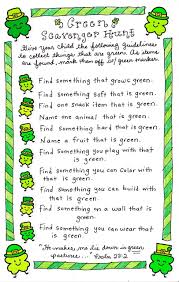 Green
Scavenger Hunt
Give your child the following guidelines
to collect things that are green. As items
are found, mark them off w/ green marker.
Find something that grows green.
Find something soft that is green.
Find one snack item that is green.
Name one animal that is green.
Find something hard that is green.
Name a fruit that is green.
Find something you play with that
is green.
Find something you can color with
that is green.
Find something you can build with
that is green.
Find something on a wall that is
green.
Find something you can wear that
is green.
"He makes me lie down in green
pastures..." Psalm 23:2